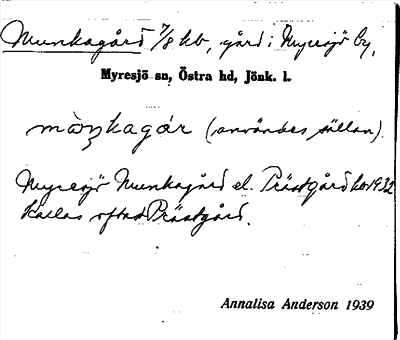 Munkagård 7/8 kb, gård i Myresjö by,
Myresjö sn, Östra hd, Jönk. l.
(användes sällan).
Myresjö Munkagård el. Prästgård kb 1932
Kallas oftast Prästgård.
Annalisa Anderson 1939